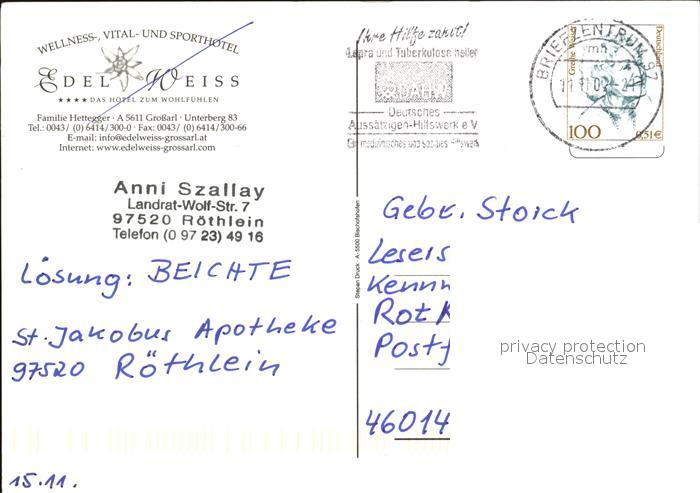 WELLNESS-, VITAL- UND SPORTHOTEL
EDELWEISS
★★★★ DAS HOTEL ZUM WOHLFÜHLEN
Familie Hettegger · A 5611 Großarl · Unterberg 83
Tel.: 0043/ (0) 6414/300-0 · Fax: 0043/ (0) 6414/300-66
E-mail: info@edelweiss-grossarl.at
Internet: www.edelweiss-grossarl.com
Anni Szallay
Landrat-Wolf-Str. 7
97520 Röthlein
Telefon (0 97 23) 49 16
Lösung: BEICHTE
St. Jakobus Apotheke
97520 Röthlein
15.11.
Stepan Druck · A-5500 Bischofshofen
Ihre Hilfe zählt!
Lepra und Tuberkulose heilen
DAHW
Deutsches
Aussätzigen-Hilfswerk e V
Ein medizinisches und soziales Hilfswerk
BRIEFZENTRUM 97
mh
Grethe Weiser
Deutschland
100
0,51€
Gebr. Storck
Lesers
Kennn
Rot K
Postf
46014
privacy protection
Datenschutz